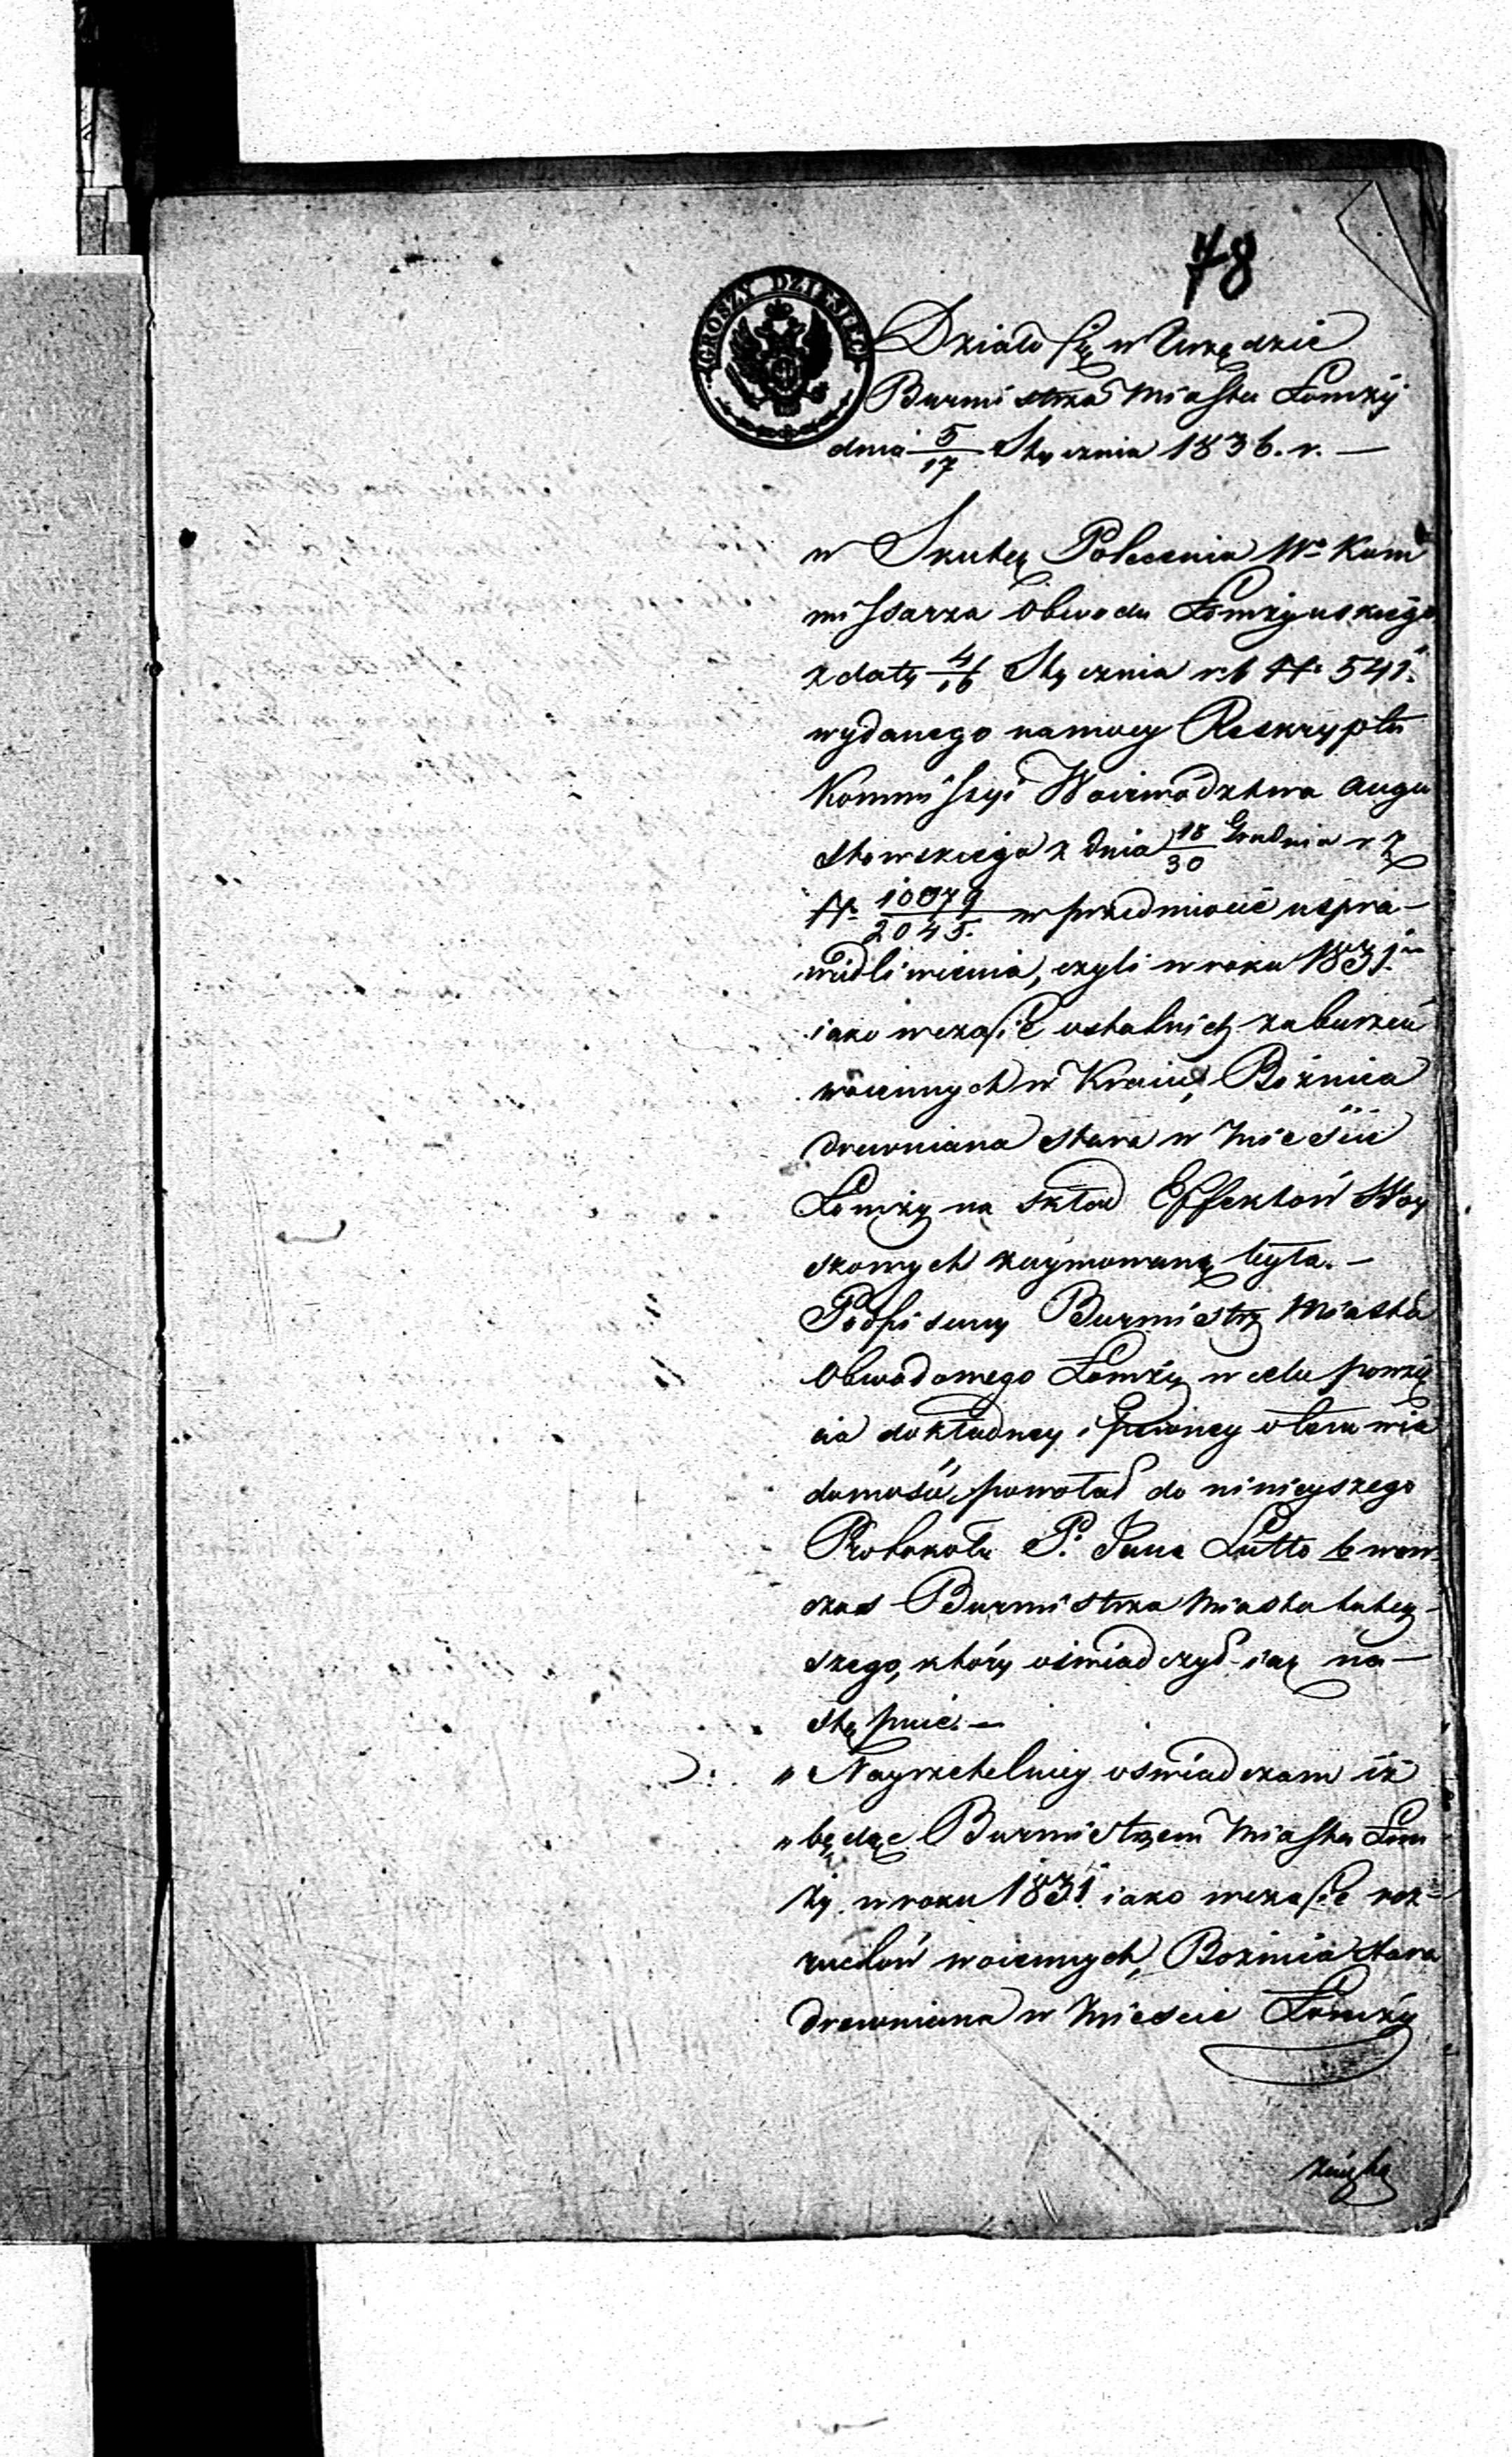 78
GROSZY DZIESIĘĆ
Działo się w Urzędzie
Burmistrza Miasta Łomży
dnia 5/17 Stycznia 1836. r. —
w Skutek Polecenia Wo Kom
missarza Obwodu Łomżyńskiego
z daty 4/16 Stycznia r. b. No 541.
wydanego na mocy Reskryptu
Kommissyi Woiewództwa Augu
stowskiego z dnia 18/30 Grudnia r z
No 10079/2045. w przedmiocie uspra-
wiedliwienia, czyli w roku 1831.
iako w czasie ostatnich zaburzeń
woiennych w Kraiu, Bożnica
drewniana stara w Mieście
Łomży na skład Effektów Woy
skowych zaymowaną była. —
Podpisany Burmistrz Miasta
Obwodowego Łomży w celu powzię
cia dokładney i pewney o tem wia
domości, powołał do ninieyszego
Protokołu P. Jana Lutto b wów
czas Burmistrza Miasta tutey-
szego, który oświadczył iak na-
stępuie. —
„ Nayrzetelniey oświadczam iż
„ będąc Burmistrzem Miasta Łom
ży w roku 1831 iako w czasie roz-
ruchów woiennych, Bożnica stara
drewniana w Mieście Łomży